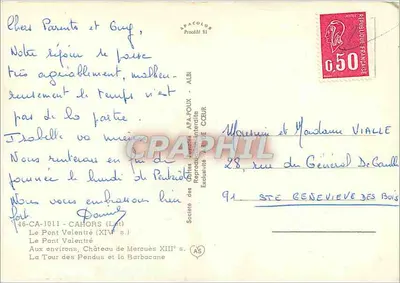 Chers Parents et Guy,
Notre séjour se passe
très agréablement, malheu-
reusement le temps n'est
pas de la partie.
Isabelle va mieux
Nous rentrerons en fin de
journée le lundi de
Nous vous embrassons bien
fort
46-CA-1011 - CAHORS (Lot)
Le Pont Valentré (XIVe s.)
Le Pont Valentré
Aux environs, Château de Mercuès XIIIe s.
La Tour des Pendus et la Barbacane
APACOLOR
Procédé SI
Société des Editions APA-POUX - ALBI
Reproduction interdite
Exclusivité CŒUR
CPAPHIL
AS
REPUBLIQUE FRANÇAISE
0,50
Monsieur et Madame VIALLE
28, rue du Général De Gaulle
91 STE GENEVIEVE DES BOIS